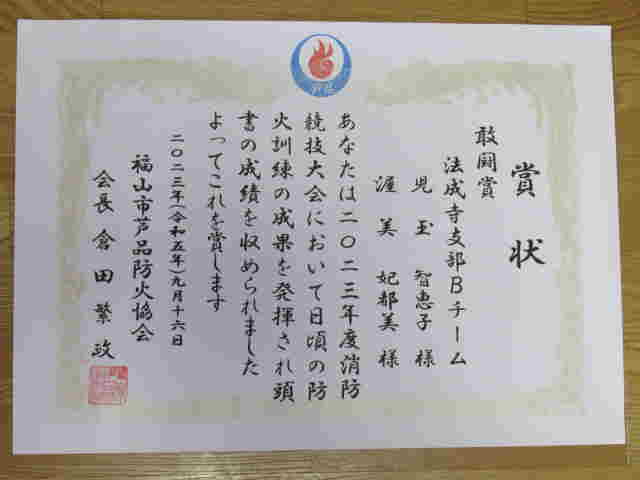 賞状
敢闘賞
法成寺支部Bチーム
児玉智恵子様
渥美妃都美様
あなたは二〇二三年度消防
競技大会において日頃の防
火訓練の成果を発揮され頭
書の成績を収められました
よってこれを賞します
二〇二三年(令和五年)九月十六日
福山市芦品防火協会
会長倉田繁政